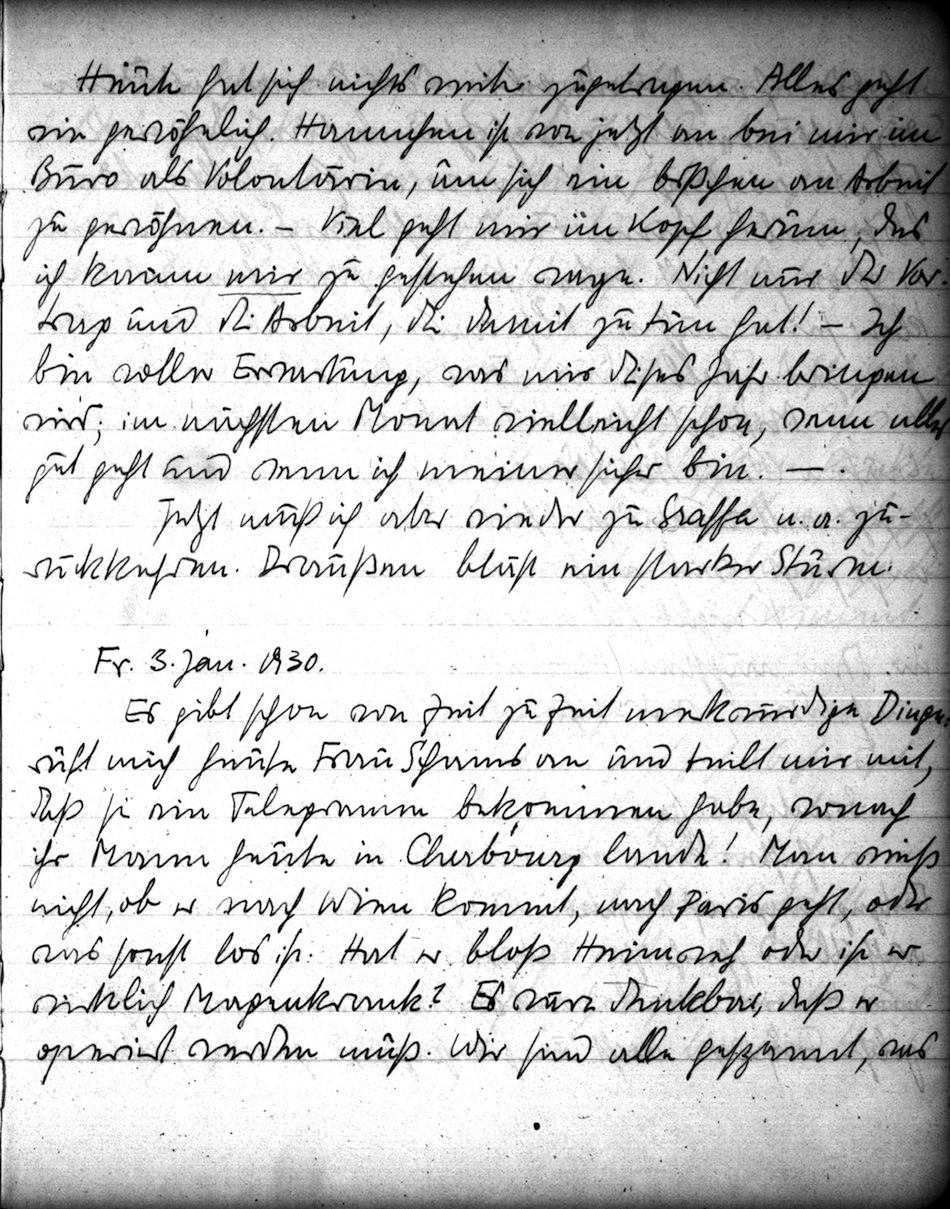 Heute hat sich nichts weiter zugetragen. Alles geht
wie gewöhnlich. Hannchen ist von jetzt an bei mir im
Büro als Volontärin, um sich ein bißchen an Arbeit
zu gewöhnen. – Viel geht mir im Kopf herum, das
ich kaum mir zu gestehen wage. Nicht nur der Vor-
trag und die Arbeit, die damit zu tun hat! – Ich
bin voller Erwartung, was mir dieses Jahr bringen
wird; im nächsten Monat vielleicht schon, wenn alles
gut geht und wenn ich meiner sicher bin. — .
Jetzt muß ich aber wieder zu u. a. zu-
rückkehren. Draußen bläst ein starker Sturm.
Fr. 3. Jan. 1930.
Es gibt schon von Zeit zu Zeit merkwürdige Dinge,
ruft mich heute Frau an und teilt mir mit,
daß sie ein Telegramm bekommen habe, wonach
ihr Mann heute in Cherbourg lande! Man weiß
nicht, ob er nach Wien kommt, nach Paris geht, oder
was sonst los ist. Hat er bloß Heimweh oder ist er
wirklich Magenkrank? Es wäre denkbar, daß er
operiert werden muß. Wir sind alle gespannt, was